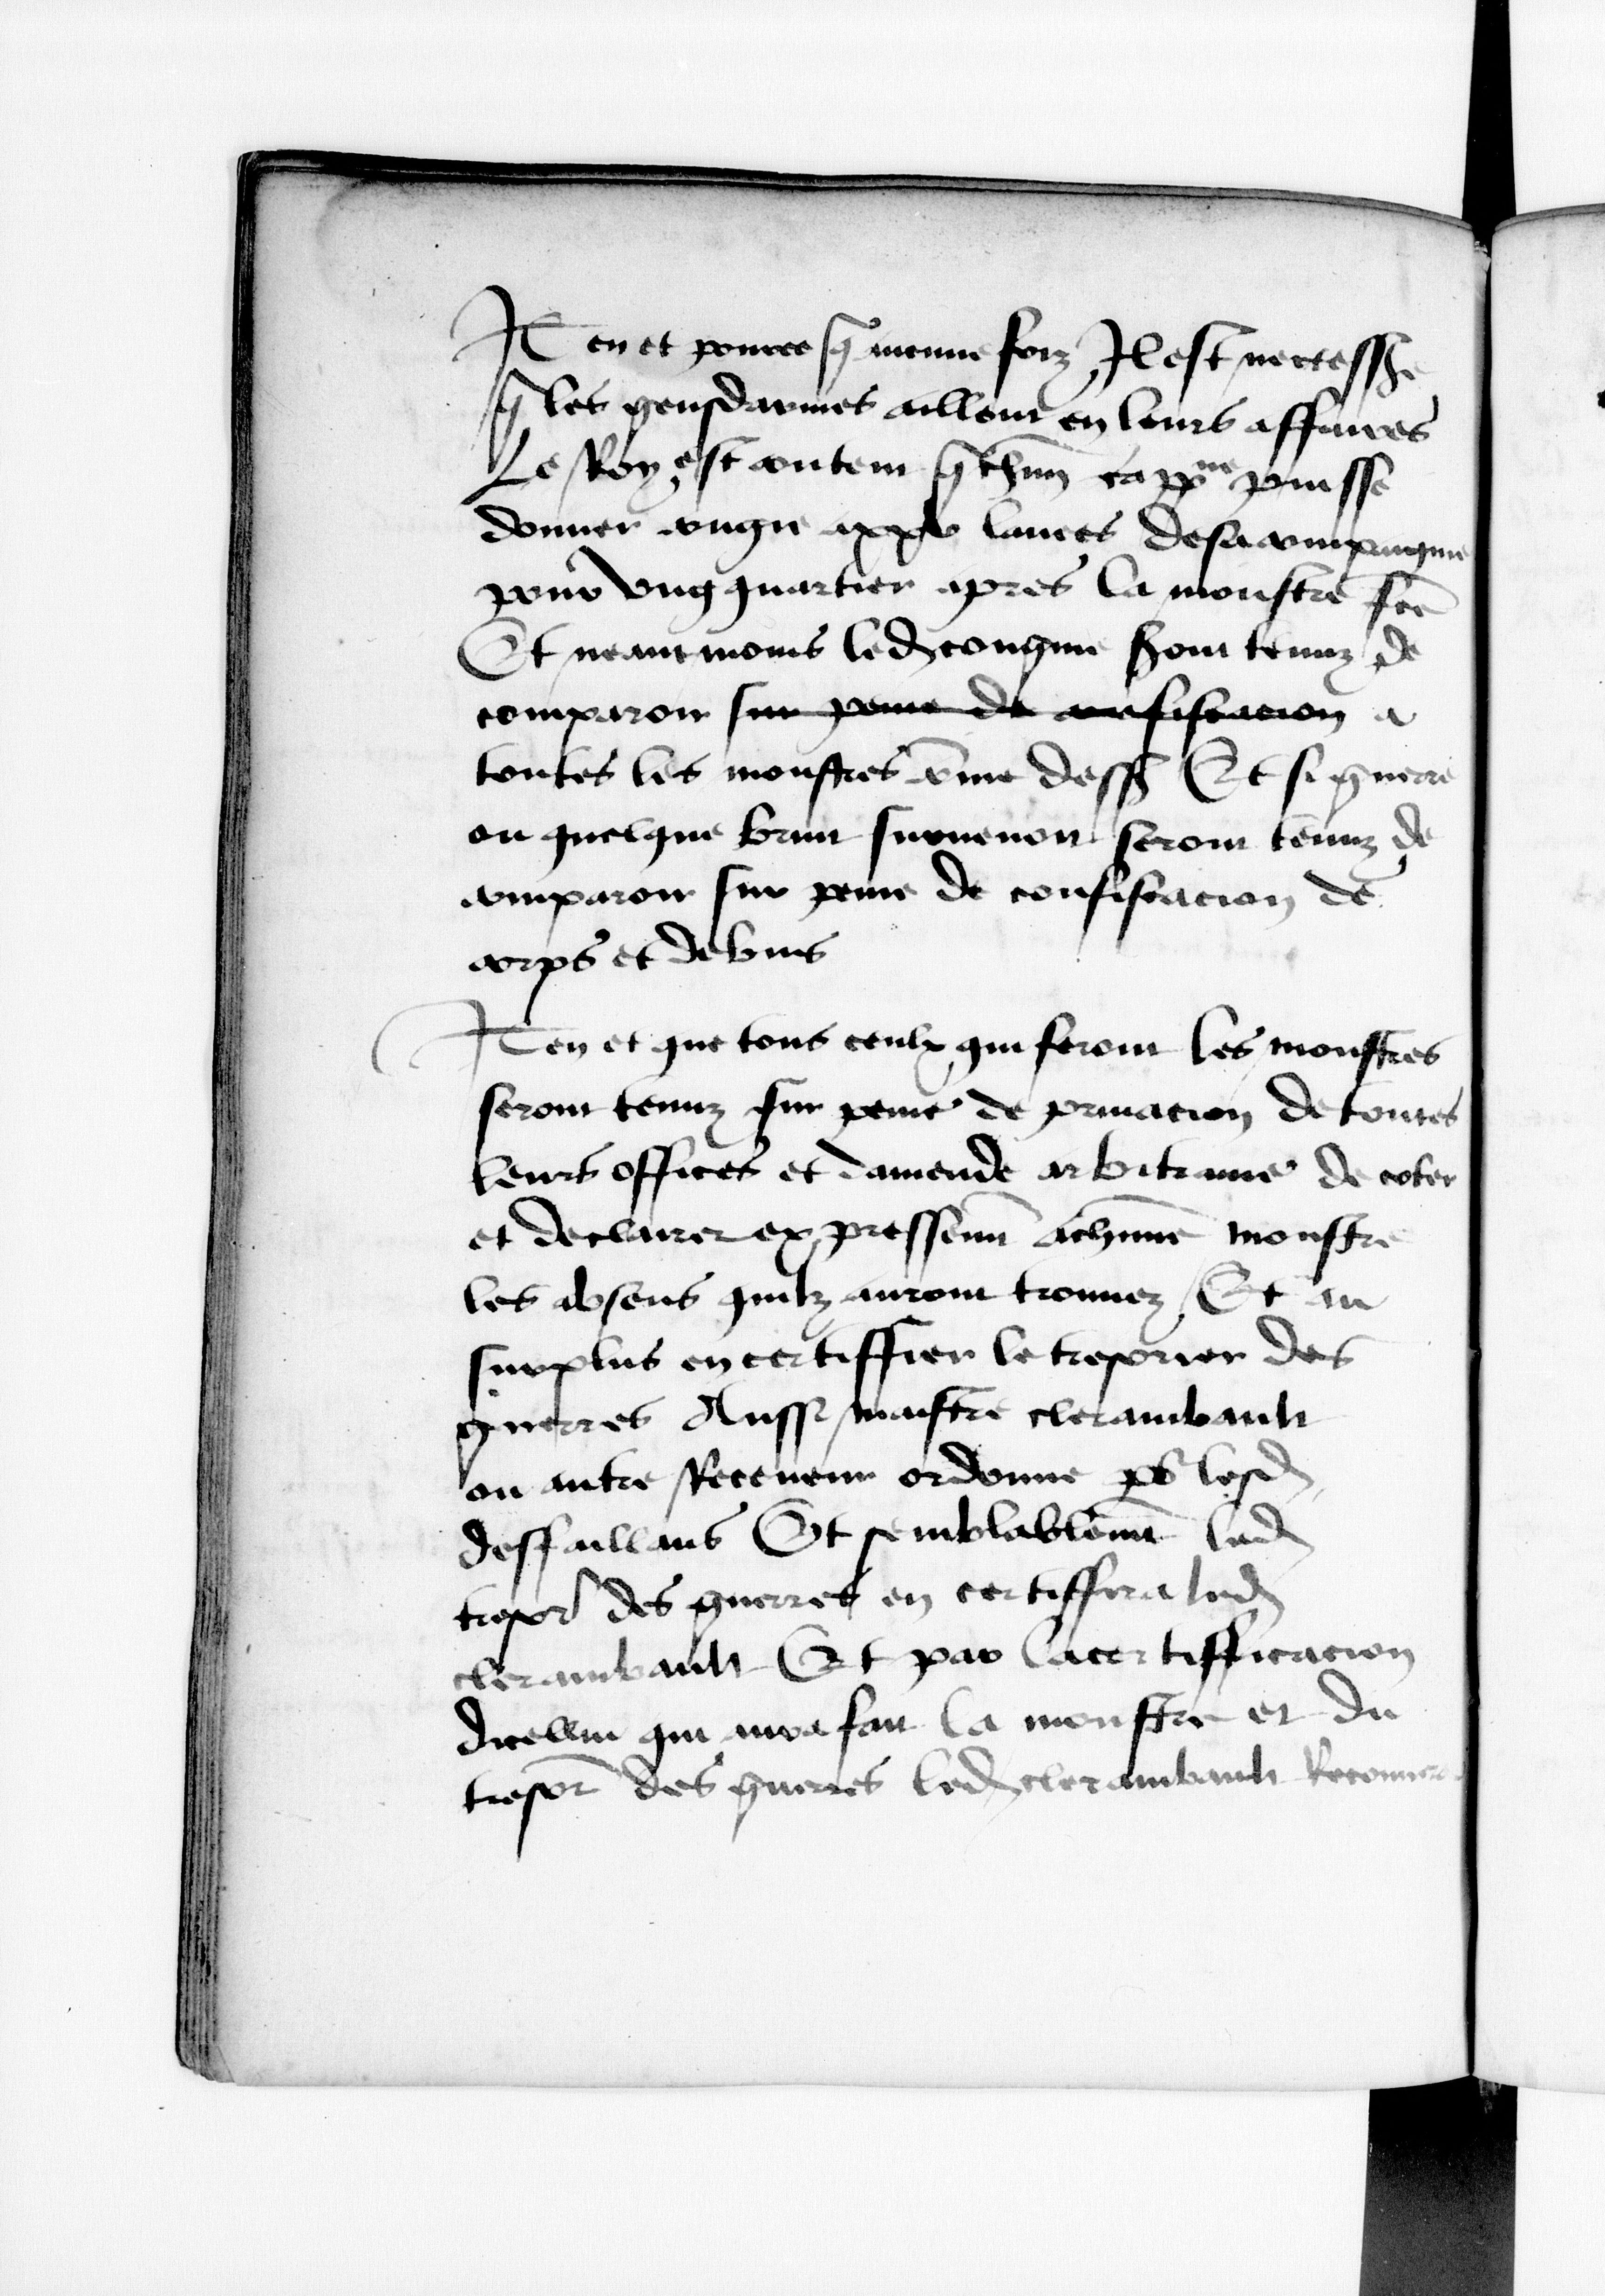 Item et pource q̃ mencuneffoiz Il est necess̃e
q̃ les gensdarmes aillent en leurs affaires
Le Roy est content q̃ ch̃un capp^ne puisse
donner congie a xxv lances de sa compaignie
pour ung quartier apres la monstre fc̃e
Et neantmoins led congme s̃ont tenuz de
comparoir sur peine de confiscacion a
toutes les monstres cõme dess̃ Et si guerre
ou quelque bruit survenoit seront tenuz de
comparoir sur peine de confiscacion de
corps et de biens
Item et que tous ceulx qui feront les monstres
seront tenuz sur peine de privacion de toutes
leurs offices et damende arbitraire de coter
et declairer expressemt̃ a ch̃une monstre
les absens quilz auront trouvez Et au
surplus en certiffier le tresorier des
guerres Aussi maistre clerambault
ou autre Receveur ordonne po^r lesd
deffaillans Et semblablemt̃ led
tresor^r des guerres en certiffira led
clerambault Et par la certifficacion
dicellui qui aura fait la monstre et du
tresor^r des guerres led clerambault Recouvrera